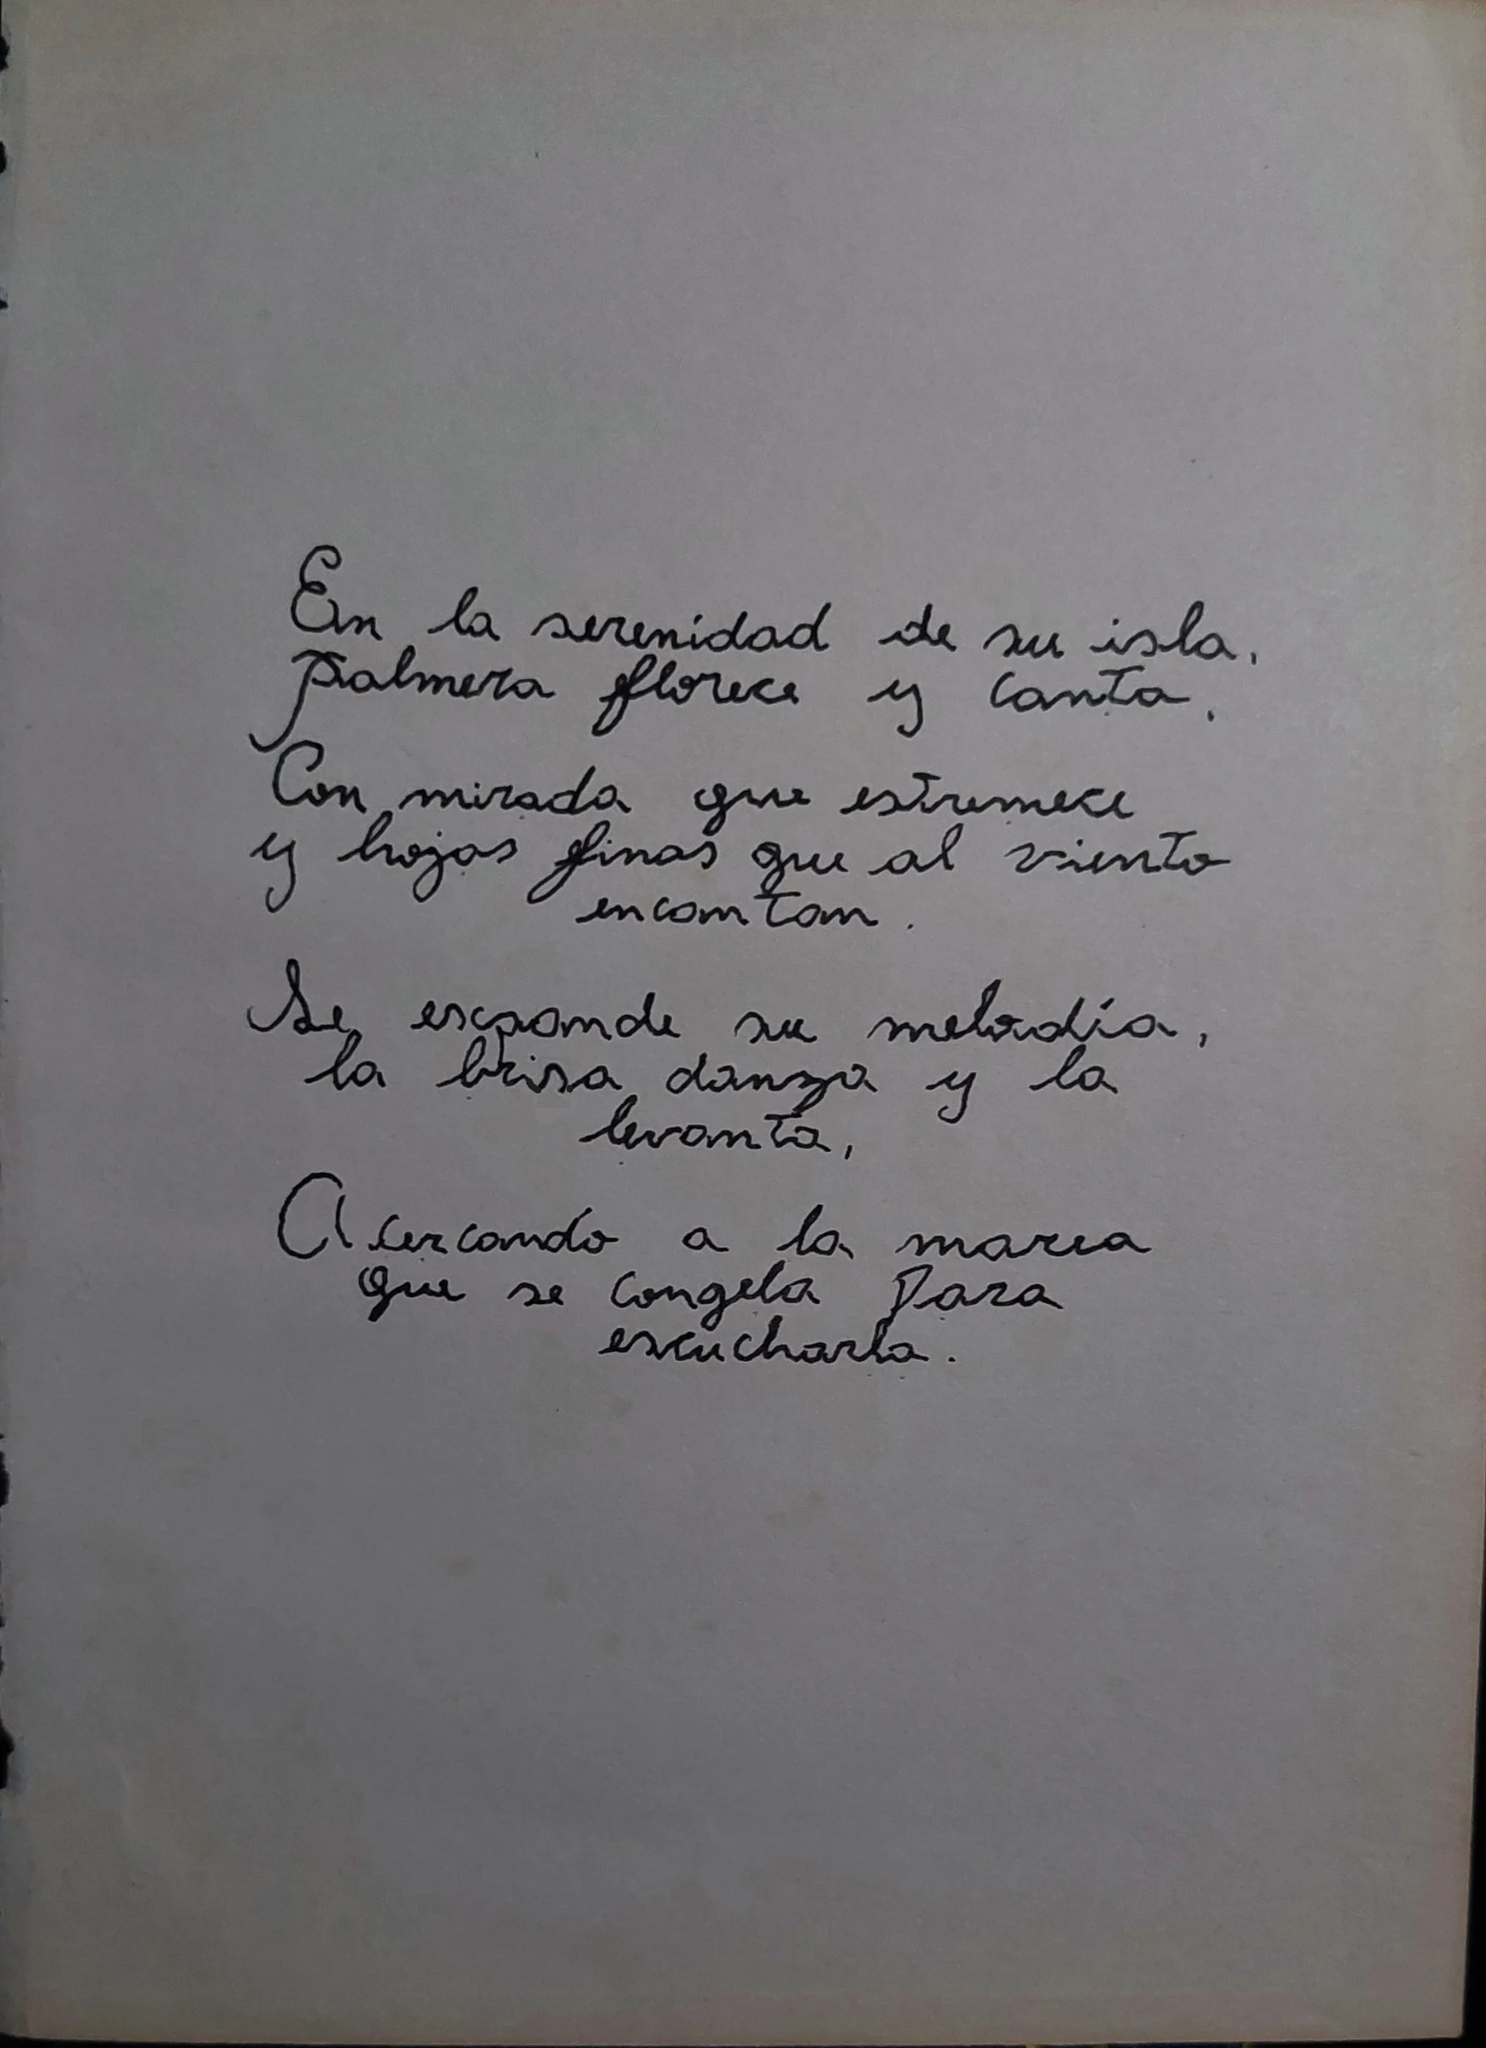 En la serenidad de su isla,
palmera florece y canta.
Con mirada que estremece
y hojas finas que al viento
encantan.
Se expande su melodía,
la brisa danza y la
levanta,
Acercando a la marea
que se congela para
escucharla.